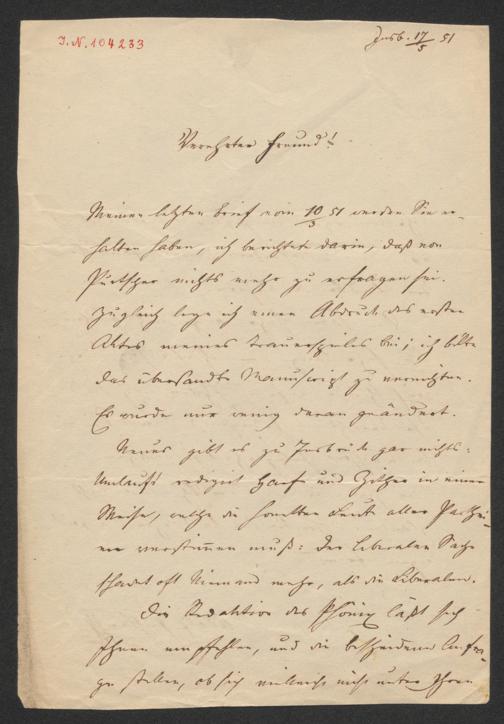 I.N. 104233
Insb. 17/5 51
Verehrter Freund!
Meinen letzten Brief vom 10/5 51 werden Sie er-
halten haben, ich berichtete darin, daß von
Purtscher nichts mehr zu erfragen sei.
Zugleich lege ich einen Abdruck des ersten
Aktes meines Trauerspieles bei; ich bitte
das übersandte Manuscript zu vernichten.
Es wurde nur wenig daran geändert.
Neues gibt es zu Insbruck gar nichts.
Umlauft redigirt Harfe und Zither in einer
Weise, welche die honetten Leute aller Parthei-
en verstimmen muß: der liberalen Sache
schadet oft Niemand mehr, als die Liberalen.
Die Redaktion des Phönix läßt sich
Ihnen empfehlen, und die bescheidene Anfra-
ge stellen, ob sich vielleicht nicht unter Ihren